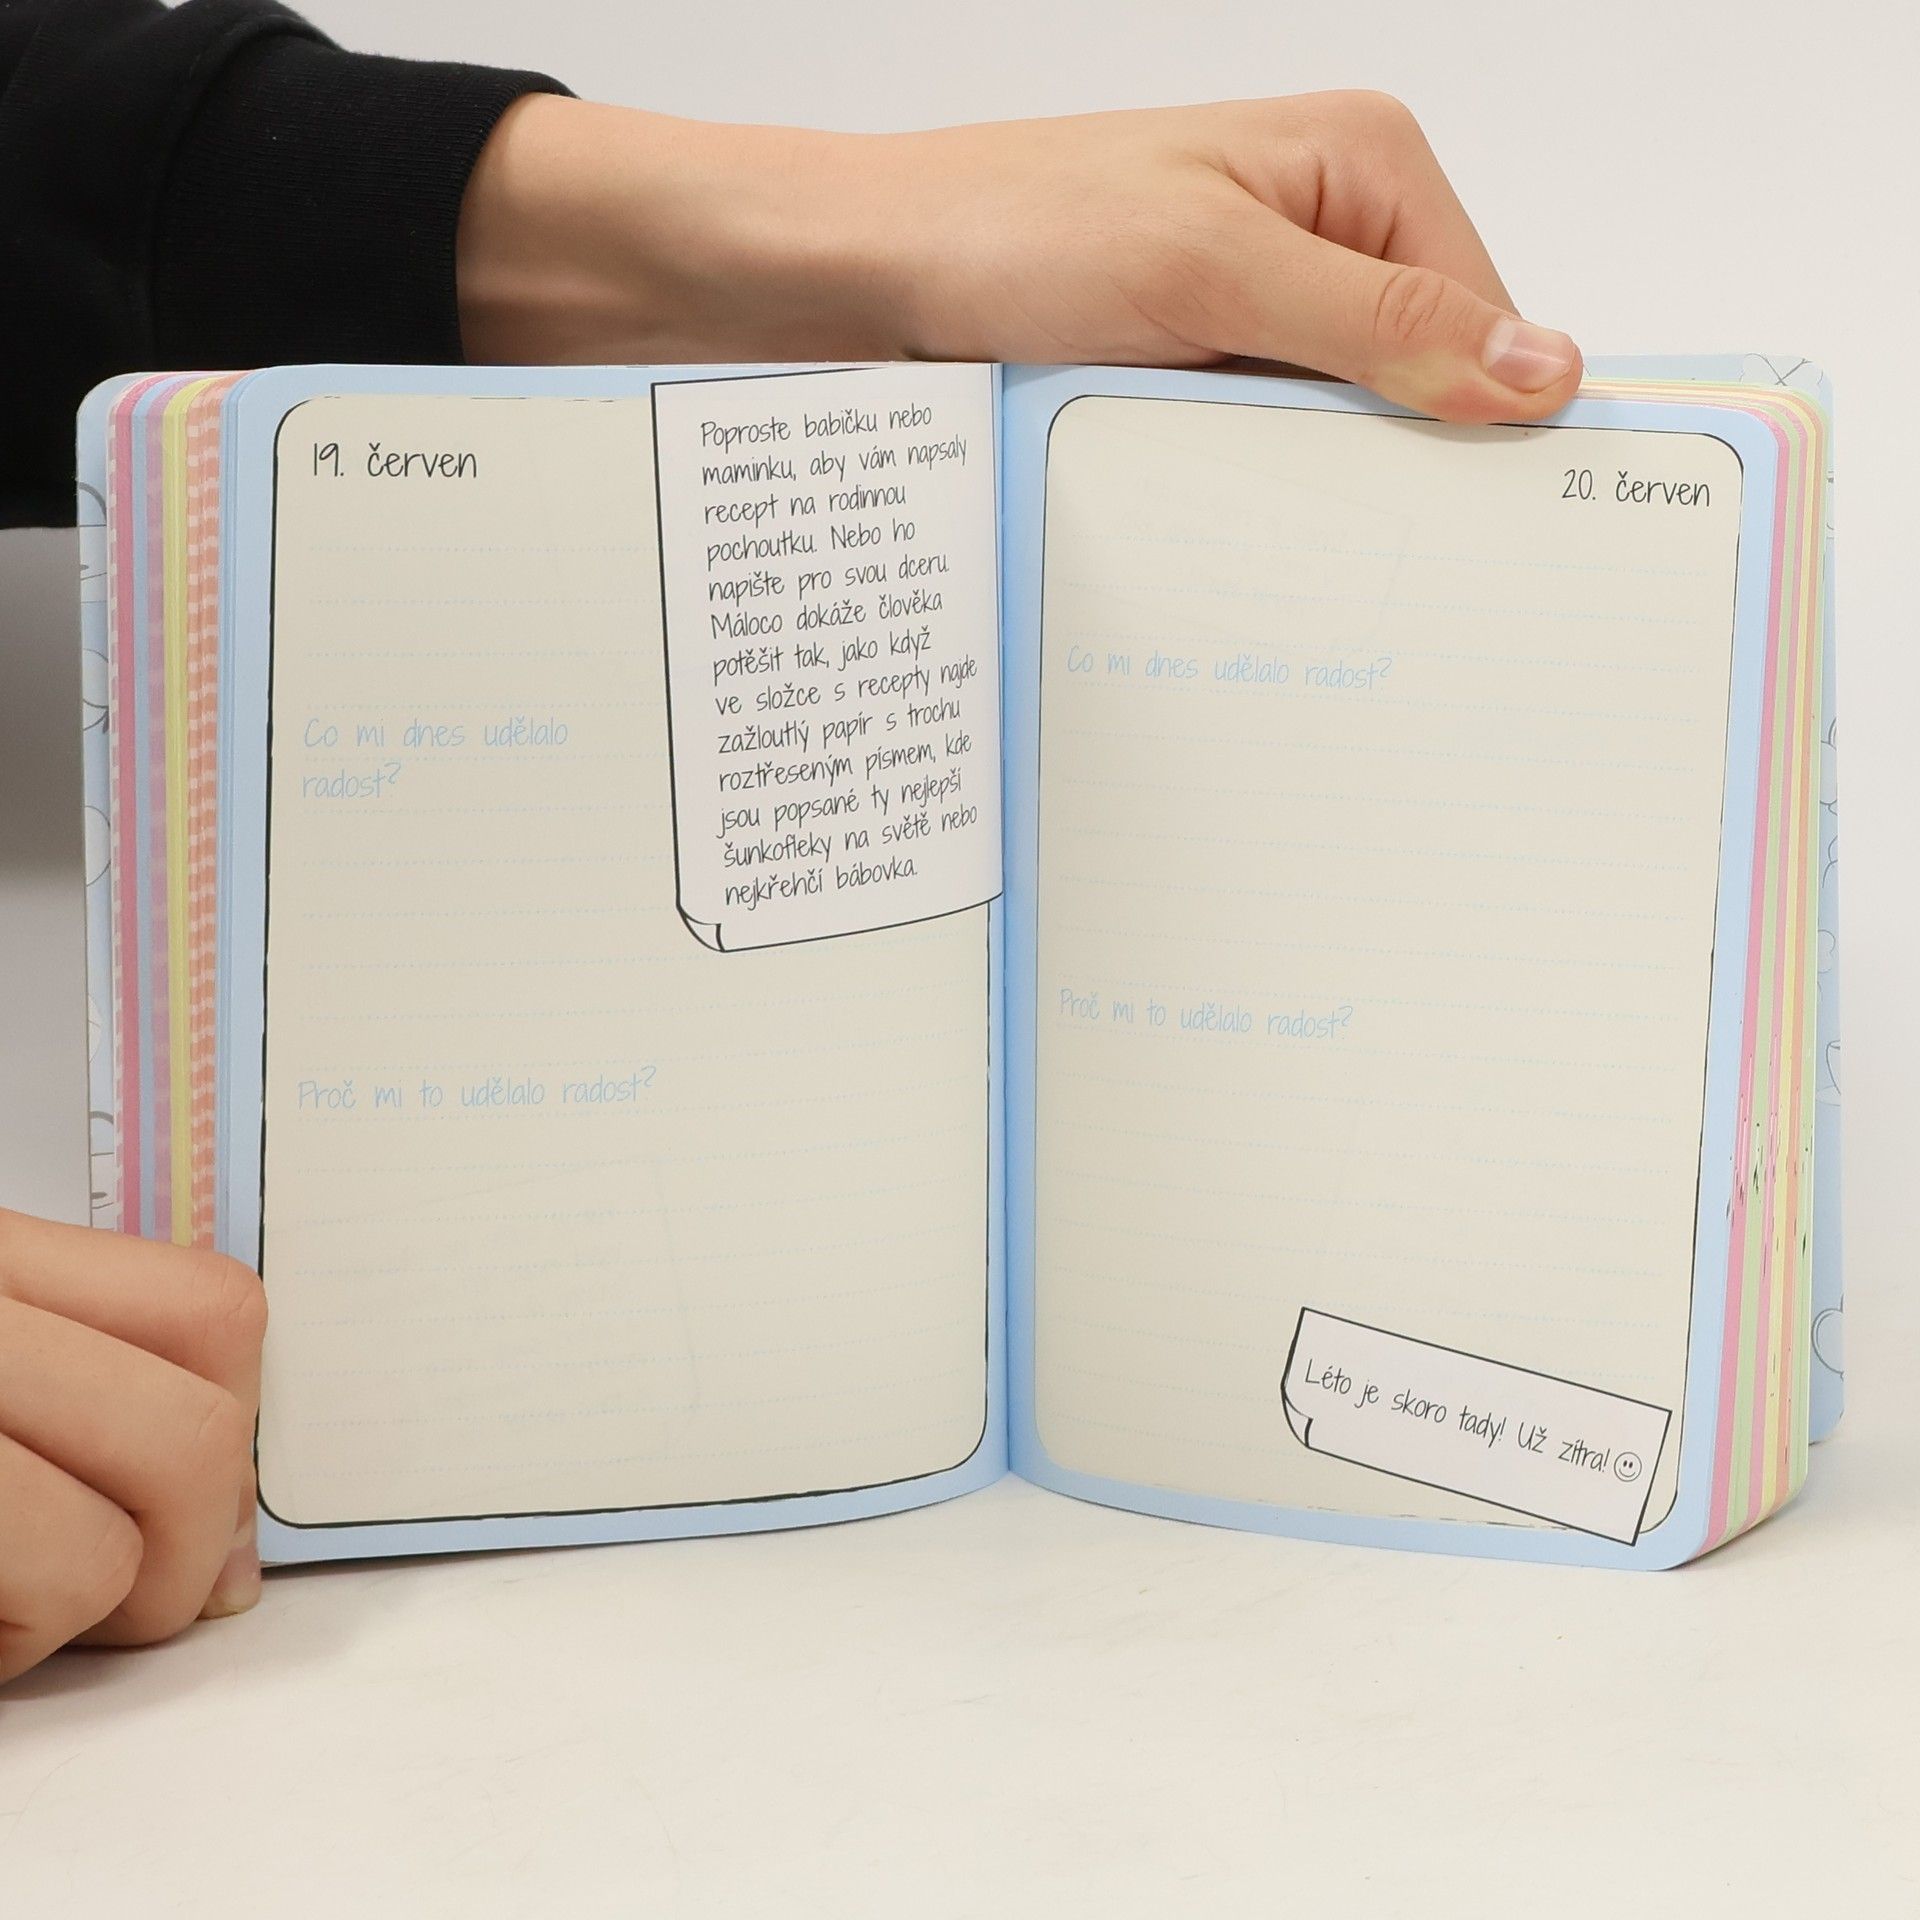 19. červen
Poproste babičku nebo
maminku, aby vám napsaly
recept na rodinnou
pochoutku. Nebo ho
napište pro svou dceru.
Máloco dokáže člověka
potěšit tak, jako když
ve složce s recepty najde
zažloutlý papír s trochu
roztřeseným písmem, kde
jsou popsané ty nejlepší
šunkofleky na světě nebo
nejkřehčí bábovka.
Co mi dnes udělalo
radost?
Proč mi to udělalo radost?
20. červen
Co mi dnes udělalo radost?
Proč mi to udělalo radost?
Léto je skoro tady! Už zítra!